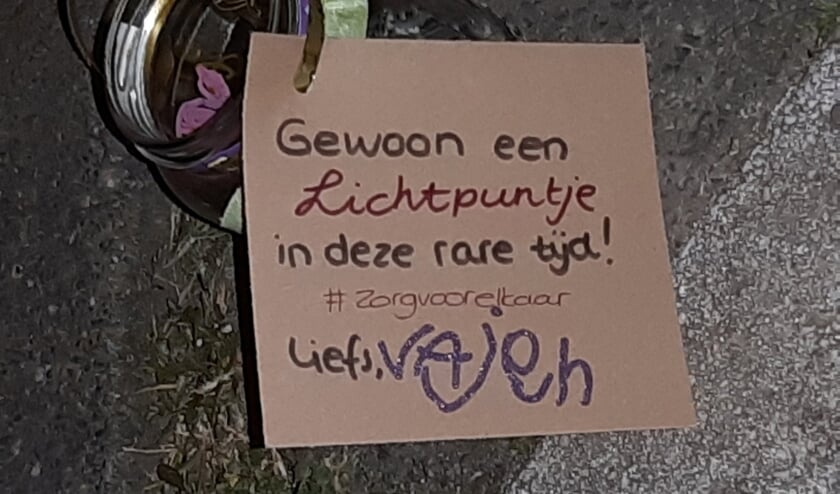 Gewoon een
Lichtpuntje
in deze rare tijd!
#zorgvoorelkaar
Liefs,